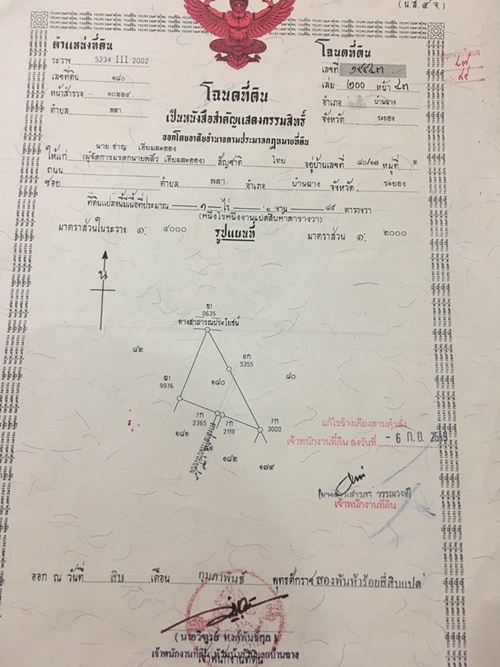 (น.ส. ๔ จ.)
ตำแหน่งที่ดิน
ระวาง 5234 III 2002
เลขที่ดิน ๑๘๐
หน้าสำรวจ ๑๐๒๒๙
ตำบล พลา
โฉนดที่ดิน
เลขที่ ๑๙๕๔๓
เล่ม ๒๐๐ หน้า ๔๓
อำเภอ บ้านฉาง
จังหวัด ระยอง
โฉนดที่ดิน
เป็นหนังสือสำคัญแสดงกรรมสิทธิ์
ออกโดยอาศัยอำนาจตามประมวลกฎหมายที่ดิน
นาย ชาญ เอี่ยมละออง
ให้แก่ (ผู้จัดการมรดกนายพลิ้ว เอี่ยมละออง) สัญชาติ ไทย อยู่บ้านเลขที่ ๔๐/๖๘ หมู่ที่ ๒
ถนน
ซอย ตำบล พลา อำเภอ บ้านฉาง จังหวัด ระยอง
ที่ดินแปลงนี้มีเนื้อที่ประมาณ ๑ ไร่ ๑ งาน ๘๕ ตารางวา
(หนึ่งไร่หนึ่งงานแปดสิบห้าตารางวา)
มาตราส่วนในระวาง ๑: ๔๐๐๐ รูปแผนที่ มาตราส่วน ๑: ๒๐๐๐
น
ฃ1
0635
ทางสาธารณประโยชน์
๘๒
8ก
5355
๑๘๐
๘๐
9976
7ก
2365
7ก
2119
7ก
3000
๑๘๑
๑๘๒
๑๗๙
แก้ไขข้างเคียงตามคำสั่ง
เจ้าพนักงานที่ดิน ลงวันที่ - 6 ก.ย. 2559
เจ้าพนักงานที่ดิน
ออก ณ วันที่ สิบ เดือน กุมภาพันธ์ พุทธศักราช สองพันห้าร้อยสี่สิบแปด
เจ้าพนักงานที่ดิน